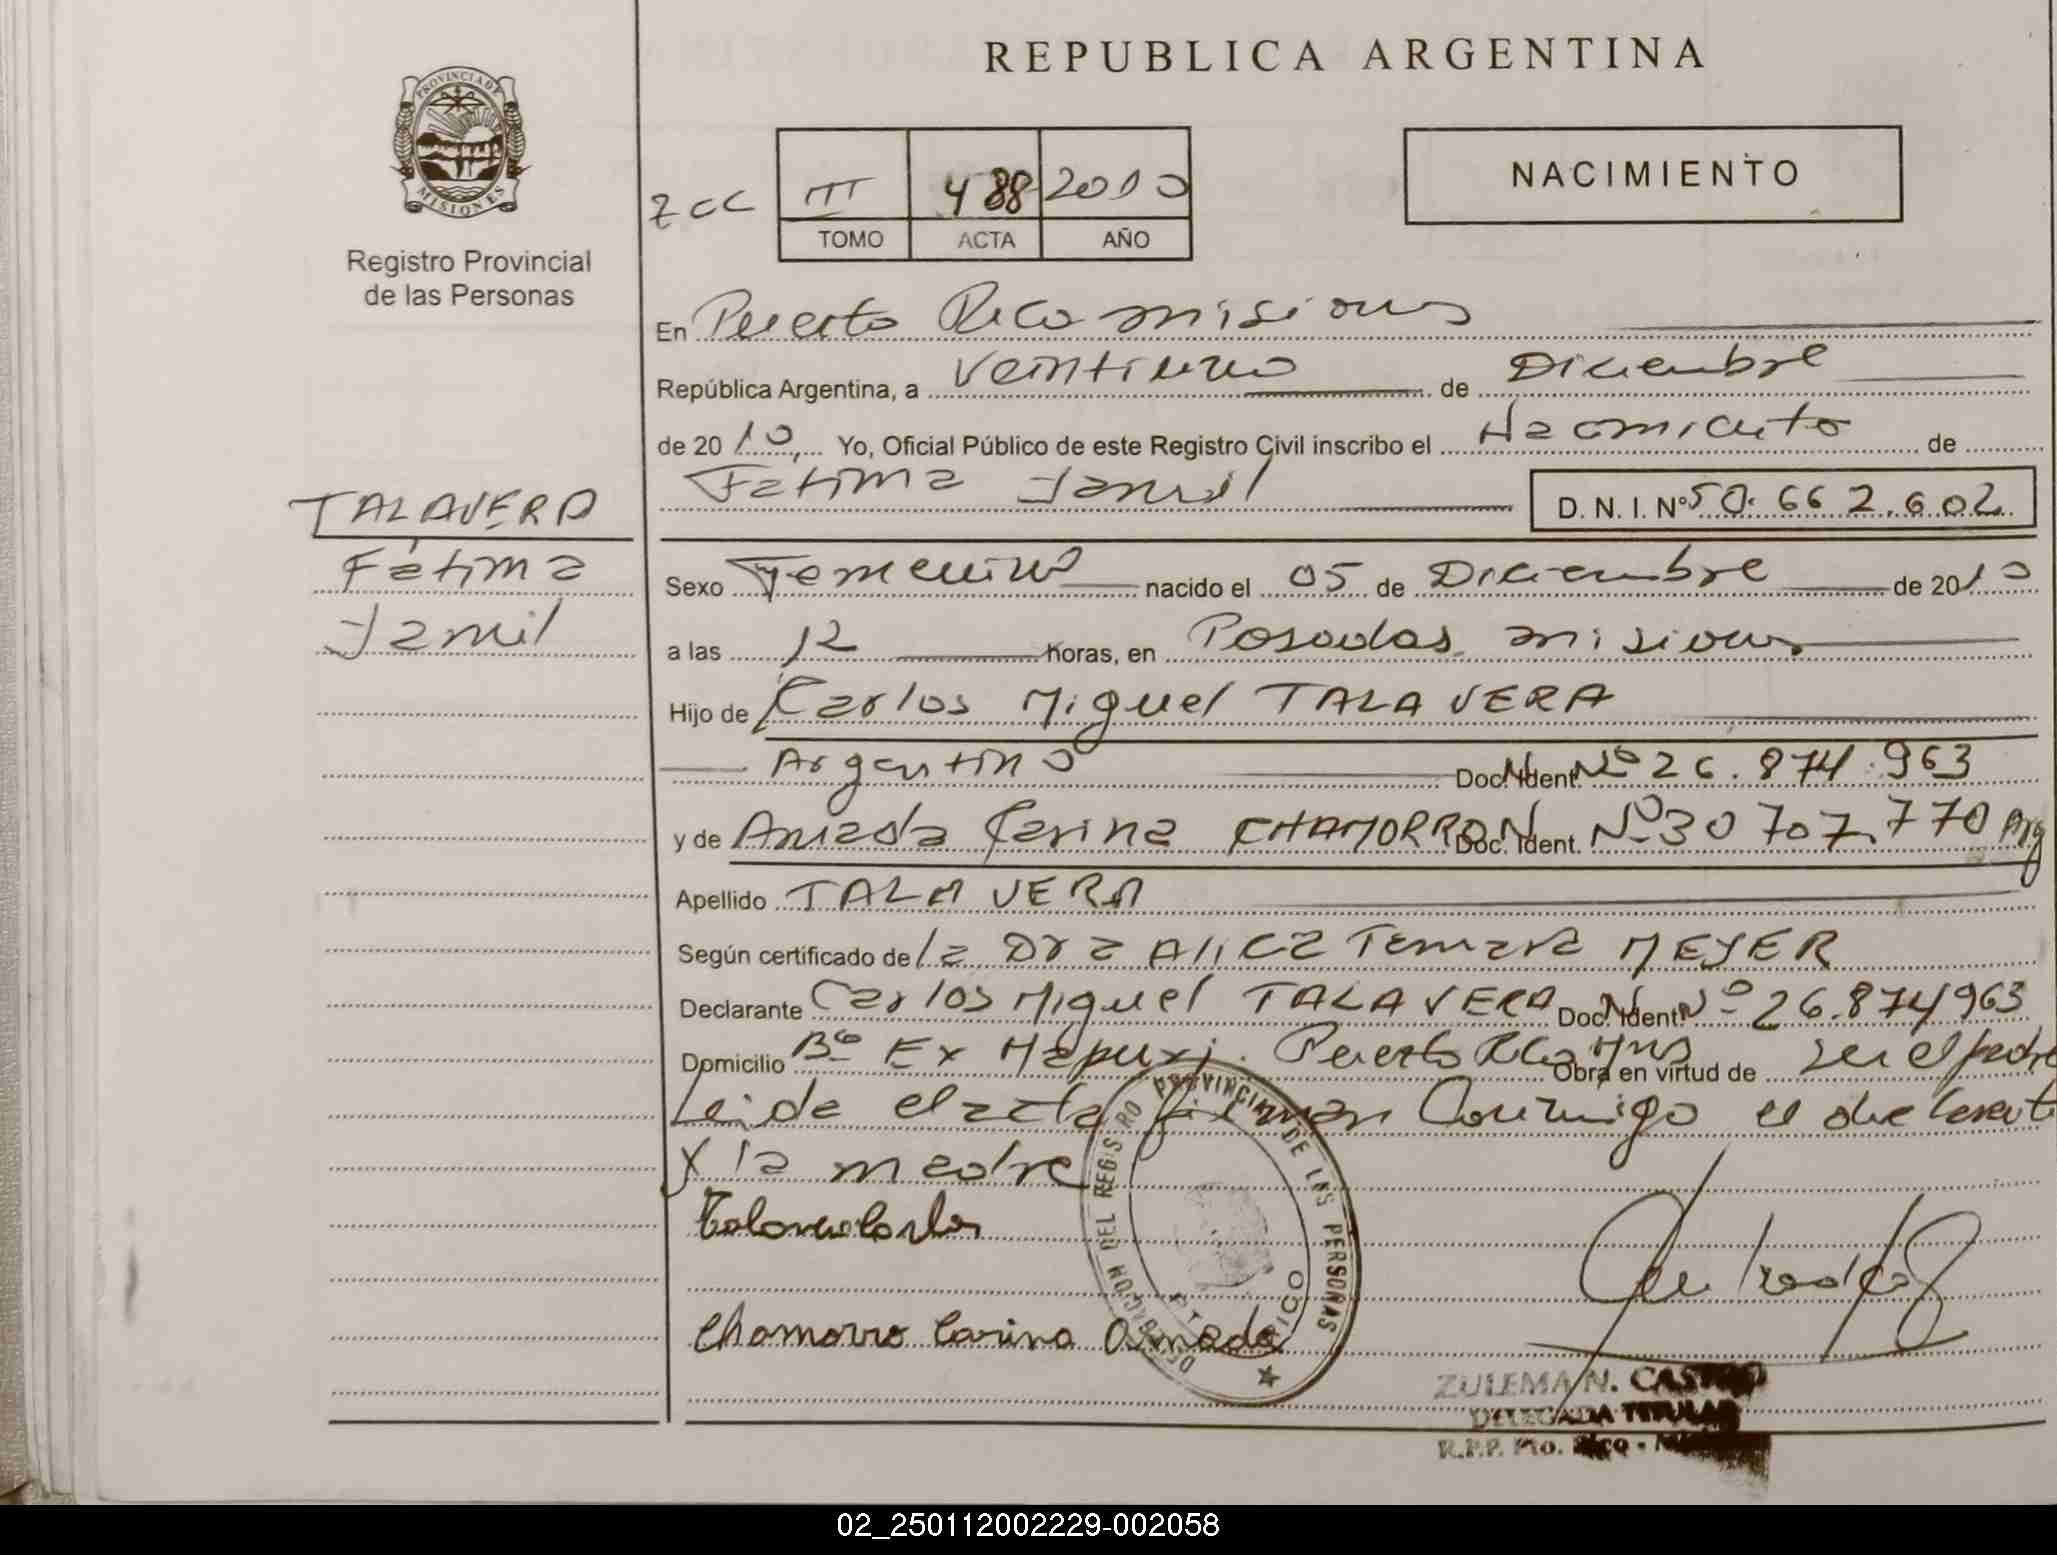 REPUBLICA ARGENTINA
PROVINCIA DE
MISIONES
Registro Provincial
de las Personas
III 488 2010
TOMO ACTA AÑO
NACIMIENTO
En Puerto Rico misiones
República Argentina, a veintiuno de Diciembre
de 2010, Yo, Oficial Público de este Registro Civil inscribo el Nacimiento de
Fatima Jamil D. N. I. Nº 50.662.602
TALAVERA
Fátima
Jamil
Sexo Femenino nacido el 05 de Diciembre de 2010
a las 12 horas, en Posadas misiones
Hijo de Carlos Miguel TALAVERA
Argentino Doc. Ident. Nº 26.874.963
y de Amada Carina CHAMORRO Doc. Ident. Nº 30707.770 Arg
Apellido TALAVERA
Según certificado de la Dra Alica Tamara MEYER
Declarante Carlos Miguel TALAVERA Doc. Ident. Nº 26.874963
Domicilio Bº Ex Puerto Rico Mns Obra en virtud de ser el padre
Leida el acta firman Conmigo el declarante
y la madre
Talavera Carlos
Chamorro Carina Amada
DELEGACION DEL REGISTRO PROVINCIAL DE LAS PERSONAS
PTO RICO
ZULEMA N. CASTRO
DELEGADA TITULAR
R.P.P. Pto. Rico -
02_250112002229-002058